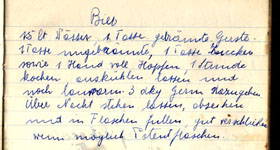 Bier
15 lt Wasser 1 Tasse gebrannte Gerste
1 Tasse ungebrannte, 1 Tasse Zucker
sowie 1 Hand voll Hopfen 1 Stunde
kochen auskühlen lassen und
noch lauwarm 3 dkg Germ dazugeben
Über Nacht stehen lassen, abseihen
und in Flaschen füllen gut verschließen
wenn möglich Patentflaschen.